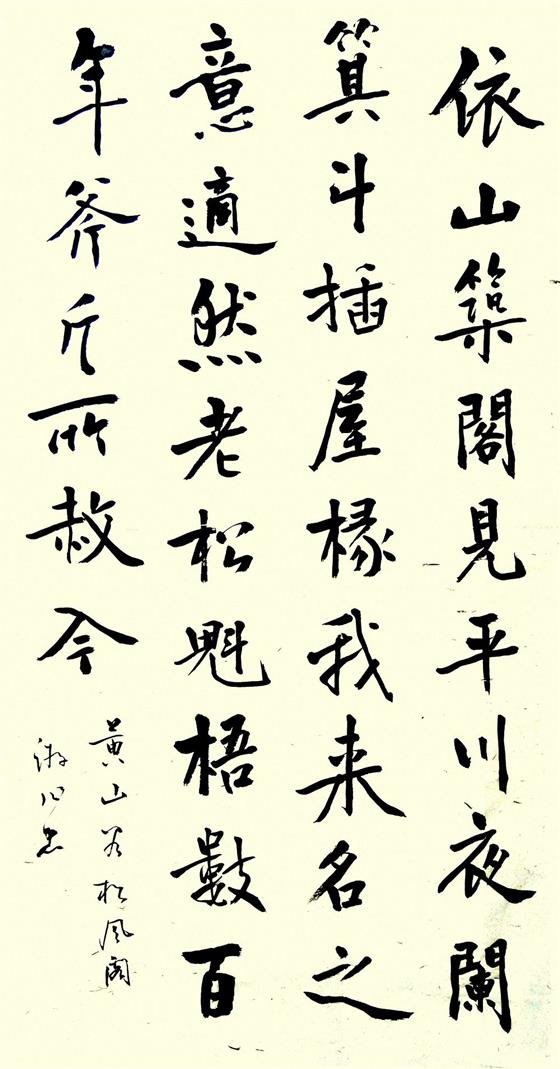 依山築閣見平川夜闌
箕斗插屋椽我来名之
意適然老松魁梧數百
年斧斤所赦今
黄山谷松风阁